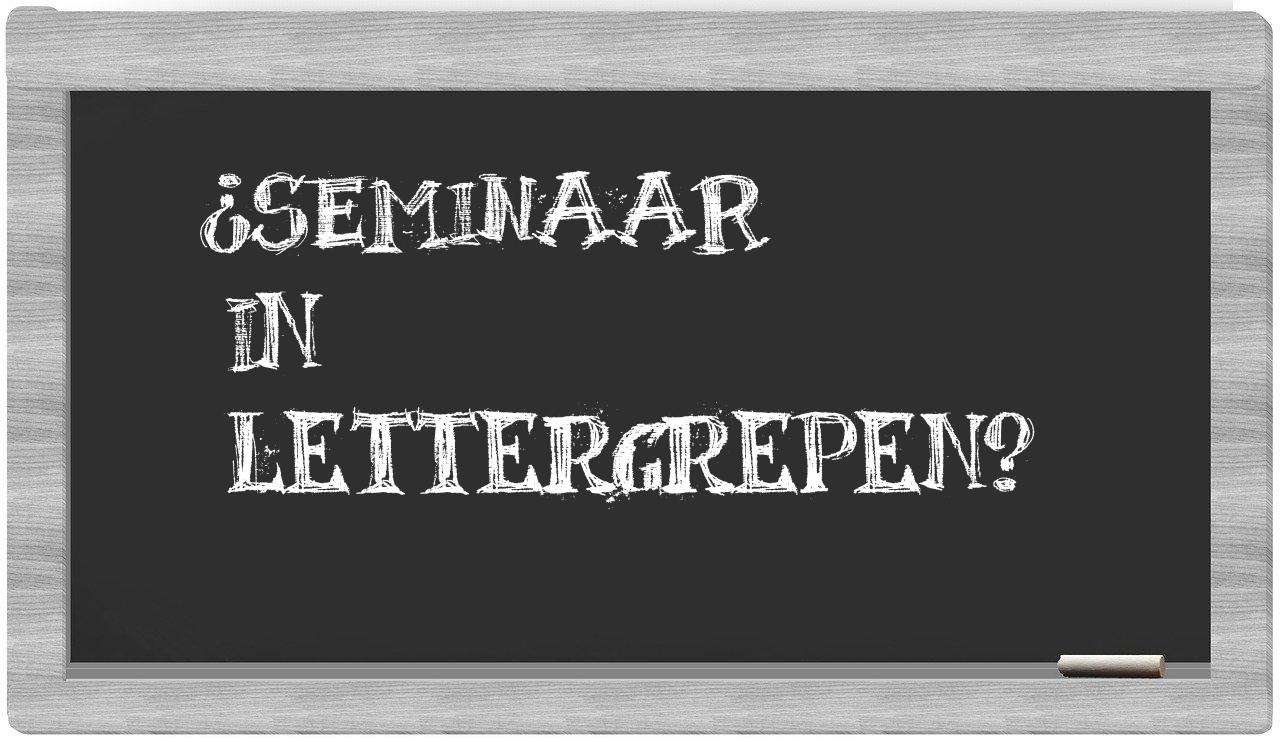 ¿SEMINAAR
IN
LETTERGREPEN?